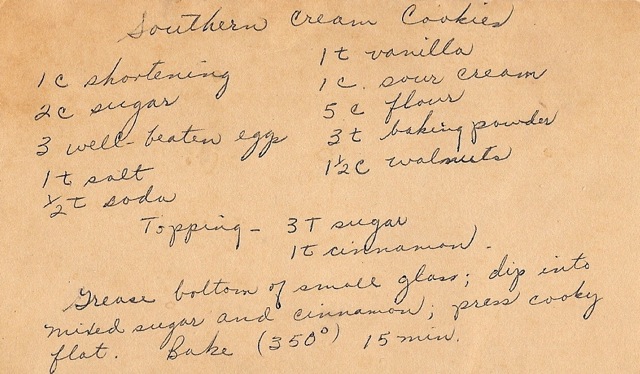 Southern Cream Cookies
1 c shortening
2 c sugar
3 well-beaten eggs
1 t salt
1/2 t soda
1 t vanilla
1 c. sour cream
5 c flour
3 t baking powder
1 1/2 c walnuts
Topping - 3 T sugar
1 t cinnamon.
Grease bottom of small glass; dip into
mixed sugar and cinnamon; press cooky
flat. Bake (350°) 15 min.